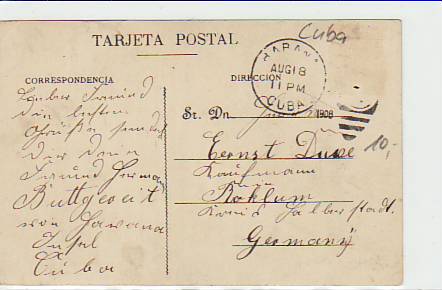 Cuba
TARJETA POSTAL
HABANA
AUG 18
11 PM
CUBA
1908
CORRESPONDENCIA
DIRECCION
Lieber Freund
die besten
Grüße sendet
Dir Dein
Freund Herman
Buttgereit
von Havana
Insel
Cuba
Sr. Dn.
Ernst Duve
Kaufmann
Roklum
Kreis Halberstadt.
Germany
10,-